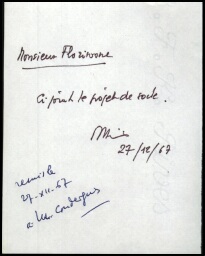 Monsieur Florisoone
Ci-joint le projet de code.
27/12/67
remis le
27-XII-67
à M. Condergues